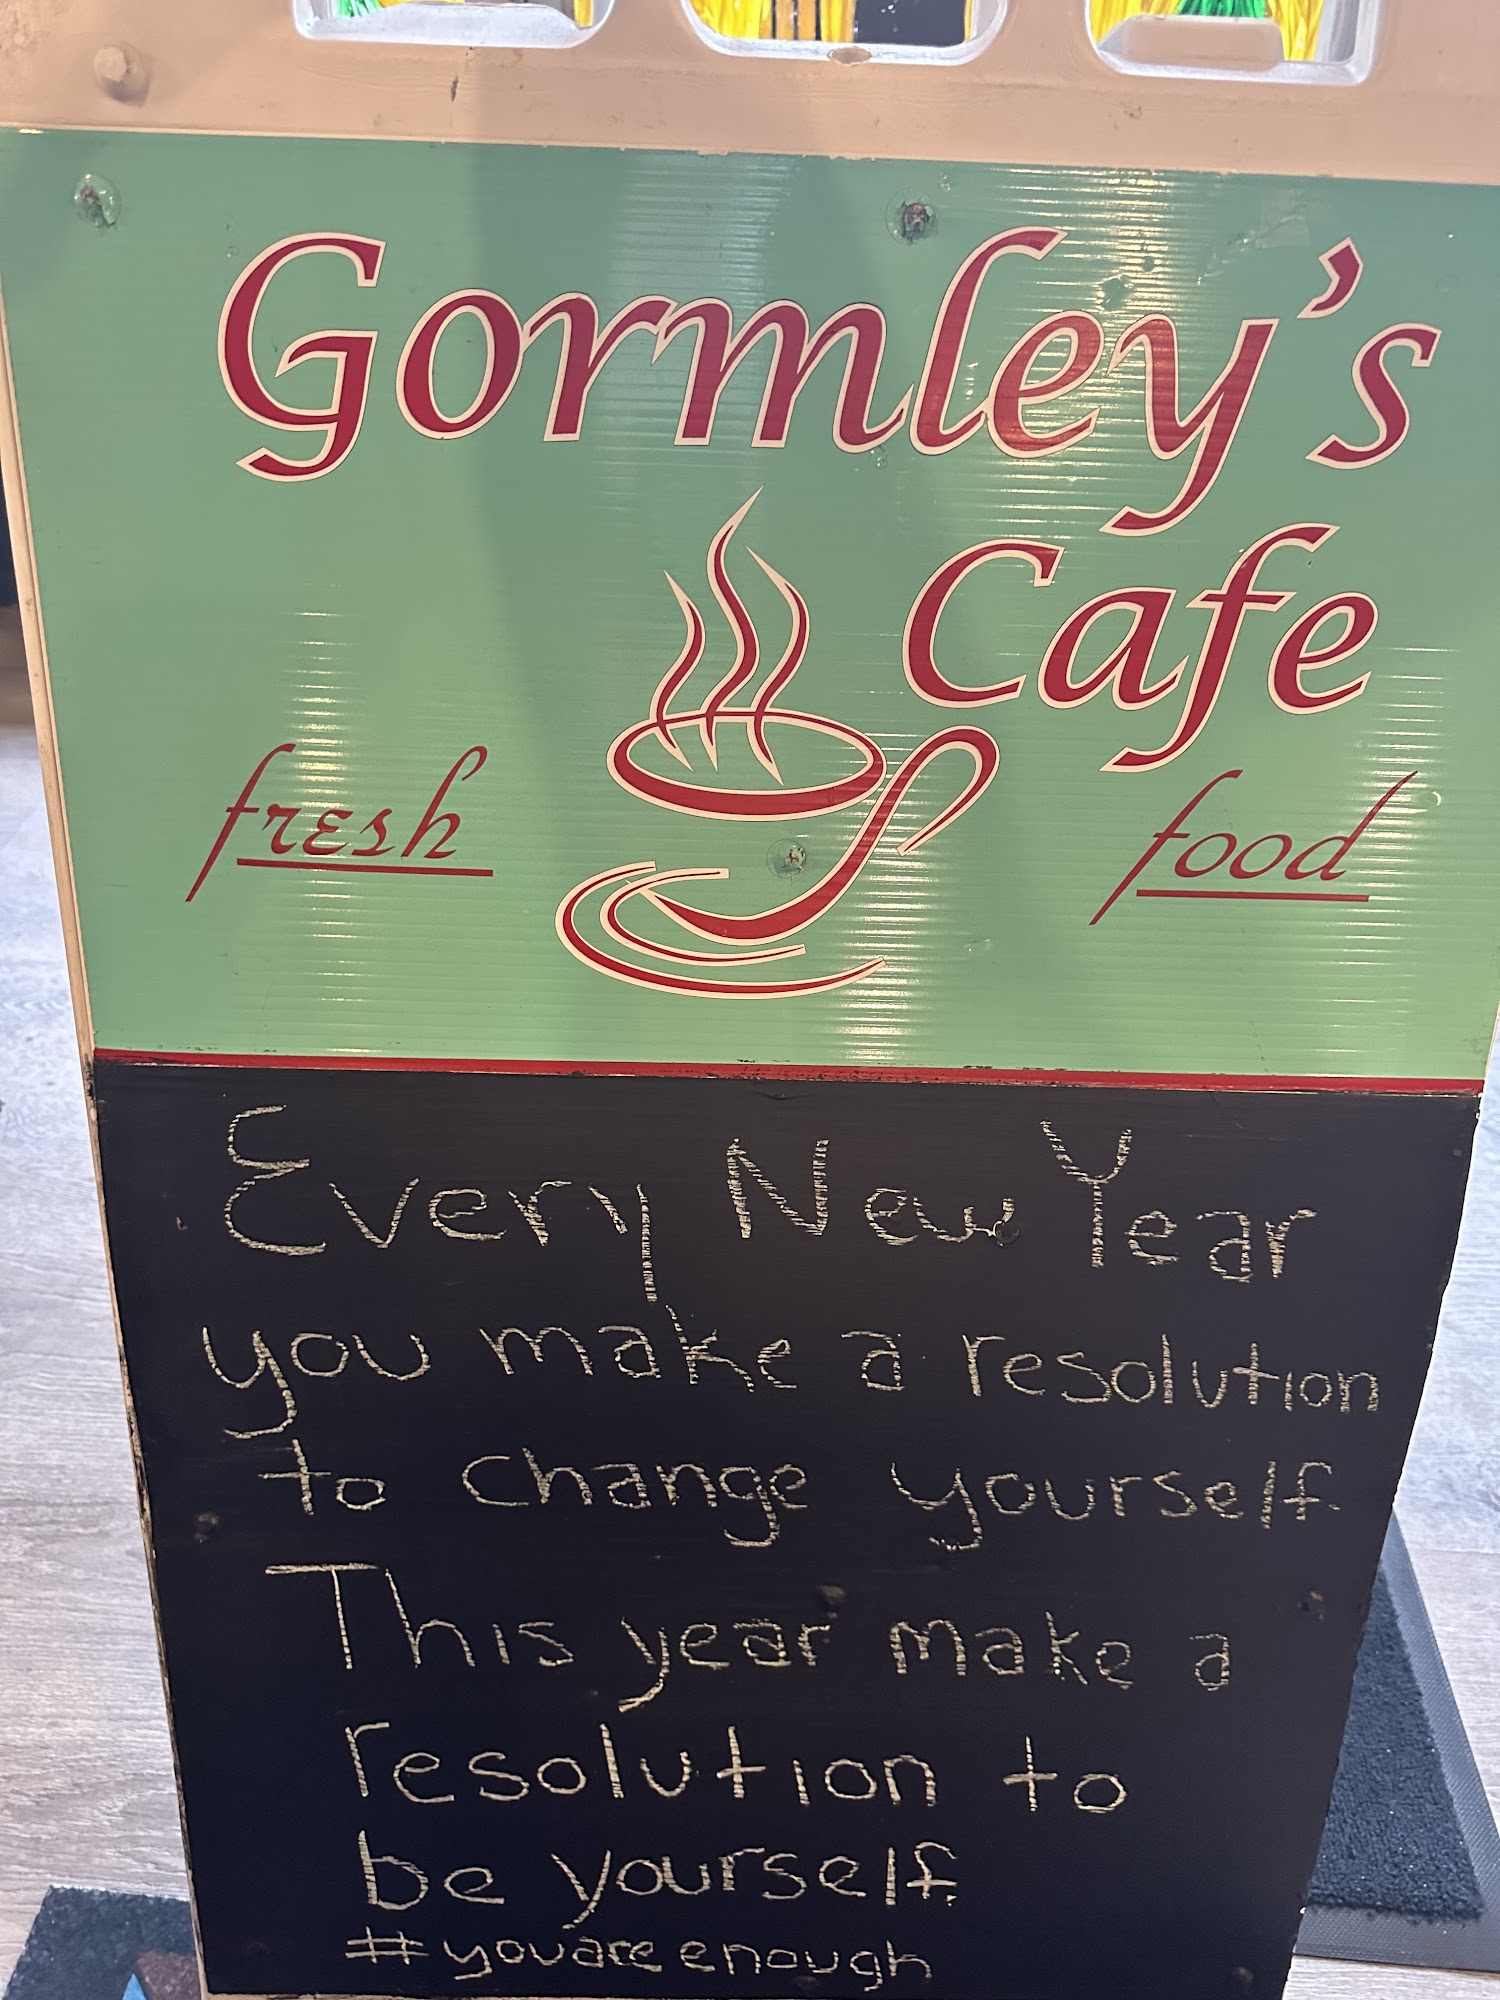 Gormley's
Cafe
fresh
food
Every New Year
you make a resolution
to change yourself.
This year make a
resolution to
be yourself.
#youareenough